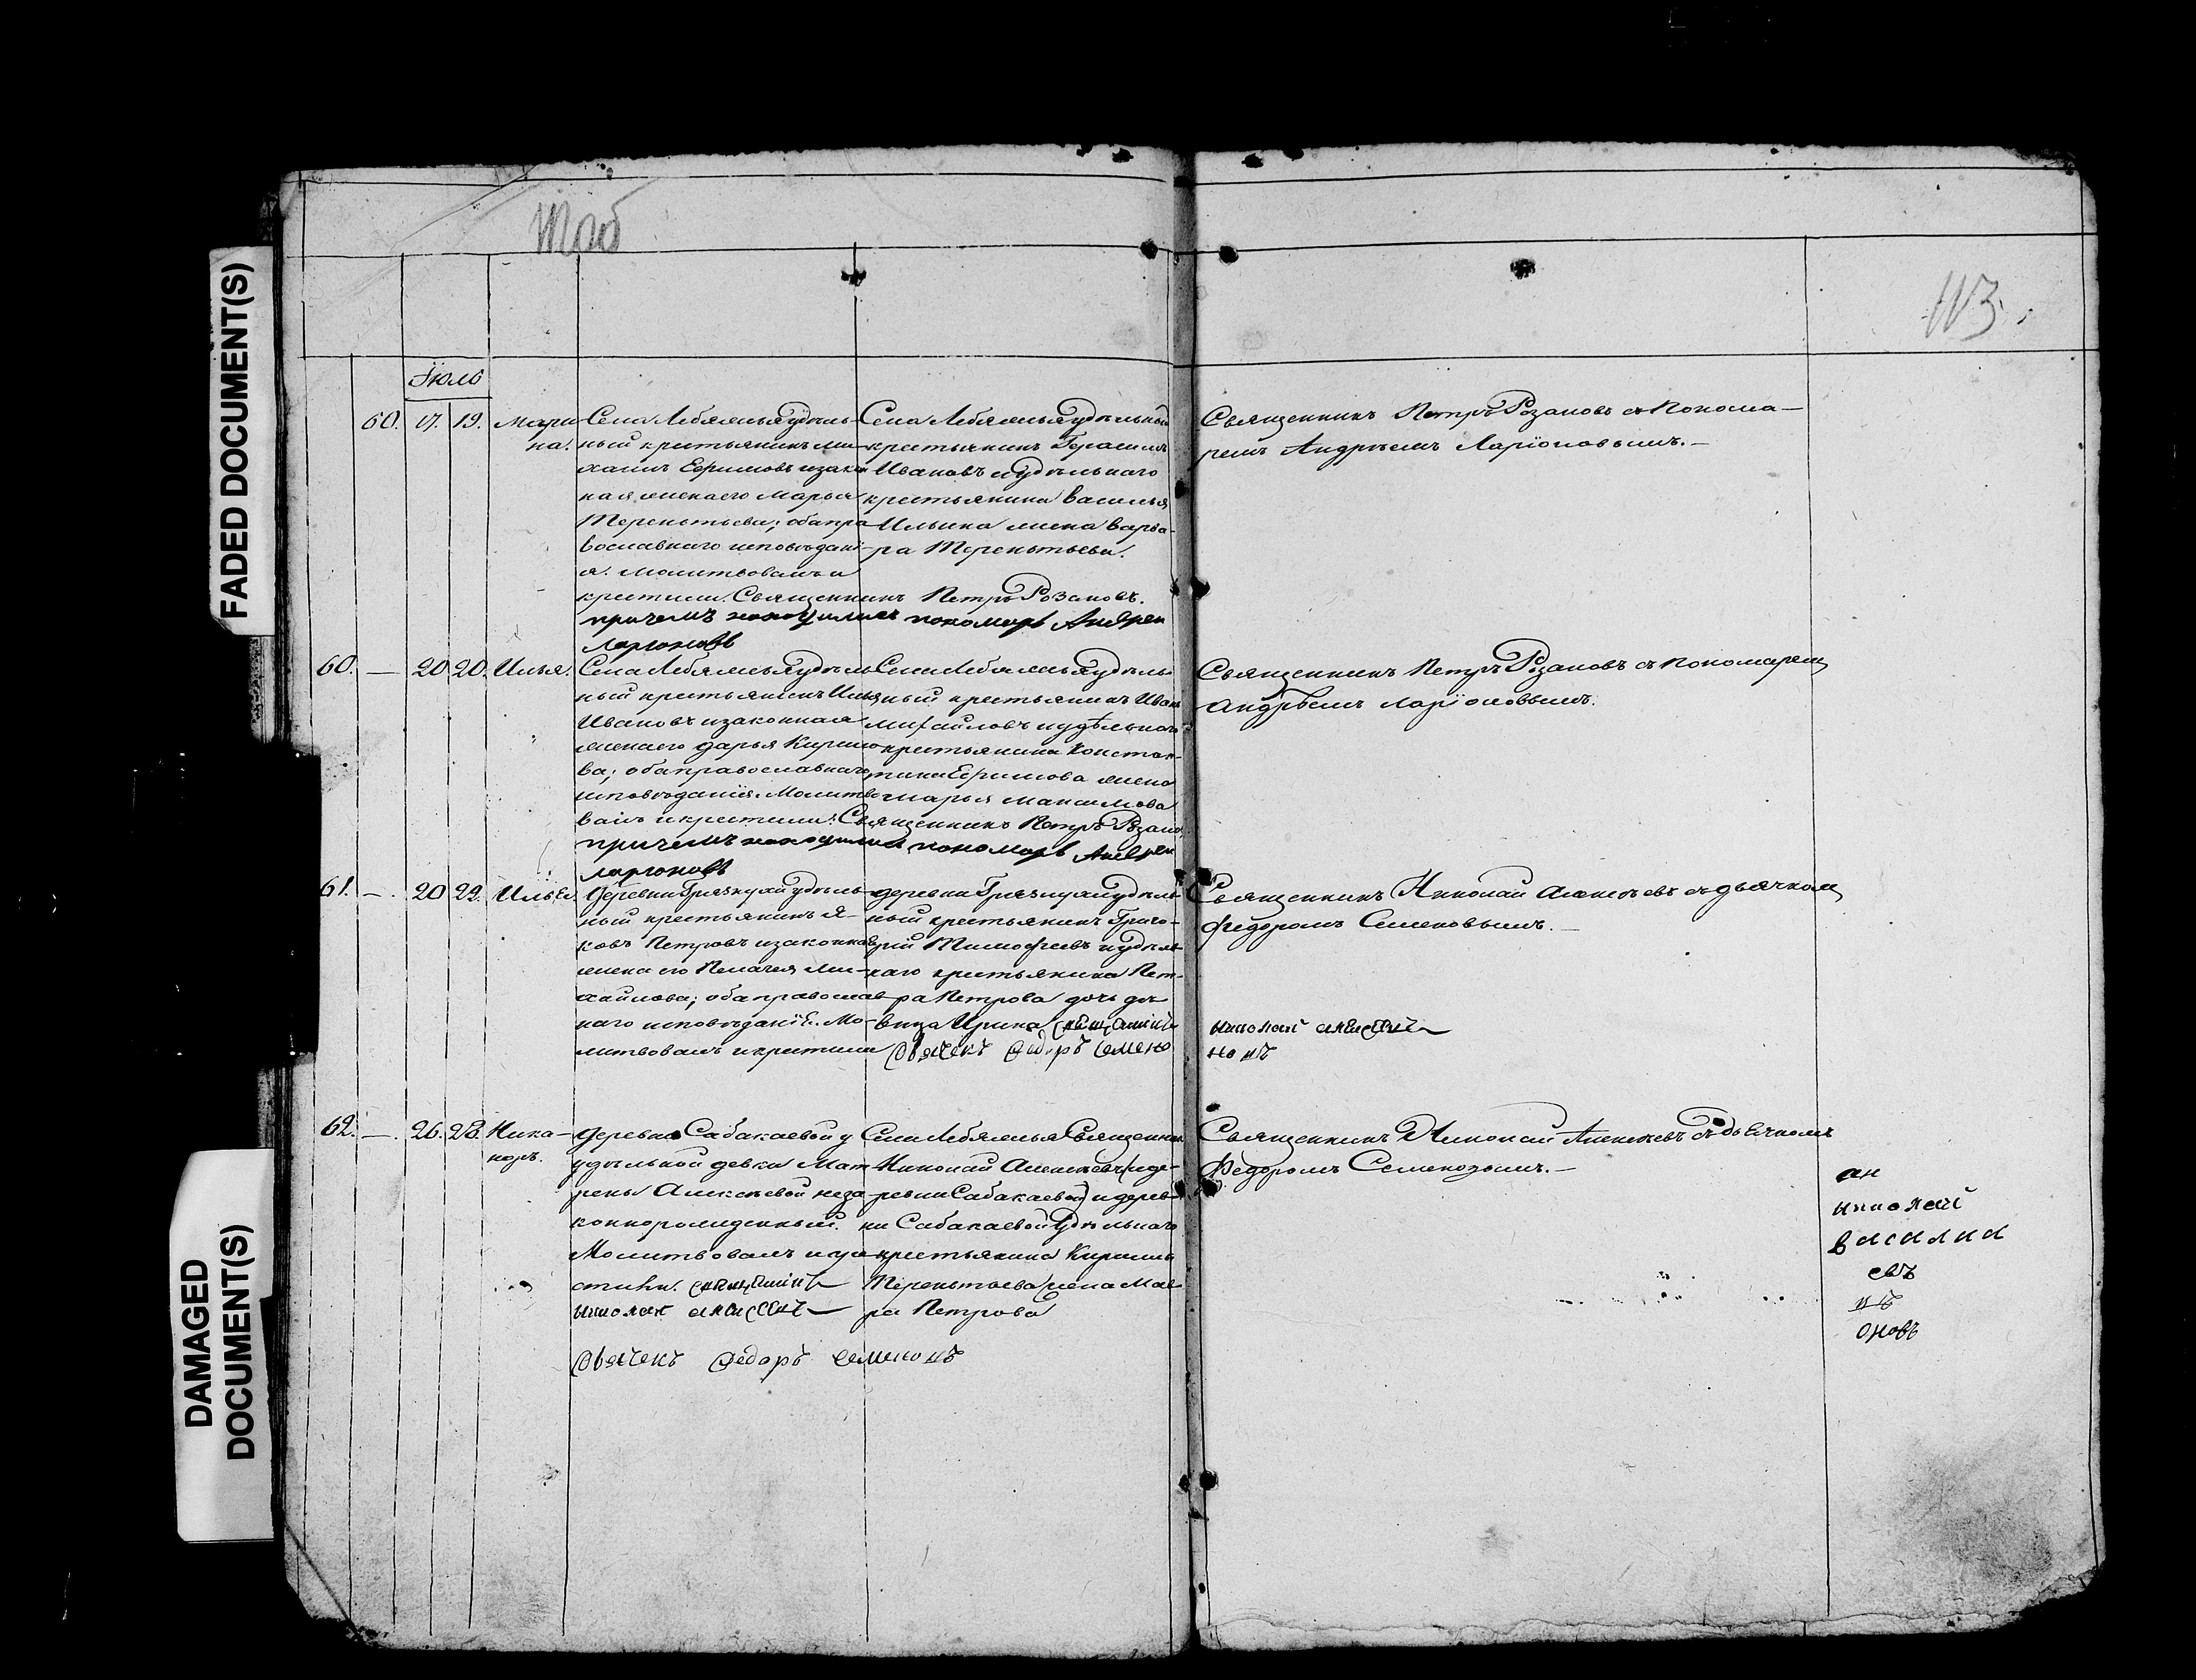 FADED DOCUMENT(S)
DAMAGED
DOCUMENT(S)
Іюль
60. 17. 19. Мари
на.
Села Лебяжья удѣль-
ный крестьянинъ Ми-
хаилъ Ефимовъ и закон
ная жена его Марья
Терентьева; оба пра-
вославнаго исповѣдані-
я. Молитвовалъ и
крестилъ. Священникъ Петръ Розановъ.
причемъ находился пономарь Андрей
Ларионовъ
Села Лебяжья удѣльный
крестьянинъ Герасимъ
Ивановъ и удѣльнаго
крестьянина Василья
Ильина жена Варва-
ра Терентьева.
Священникъ Петръ Розановъ съ Понома-
ремъ Андрѣемъ Ларіоновымъ.-
60. — 20 20. Илья.
Села Лебяжья удѣль
ный крестьянинъ Илья
Ивановъ и законная
жена его Дарья Кирило
ва; оба православнаго
исповѣданія. Молитво
валъ и крестилъ: Священникъ Петръ Розанов
причемъ находился пономарь Андрей
Ларионовъ
Села Лебяжья удѣль
ный крестьянинъ Иванъ
Михайловъ и удѣльнаго
крестьянина Констан-
тина Ефимова жена
Марья Максимова
Священникъ Петръ Розановъ съ Пономаремъ
Андрѣемъ Ларіоновымъ.
61. — 20 22. Илья.
Деревни Грязнухи удѣль-
ный крестьянинъ Я-
ковъ Петровъ и законная
жена его Пелагея Ми-
хайлова; оба православ
наго исповѣданіе. Мо-
литвовалъ и крестилъ
деревни Грязнухи удѣль-
ный крестьянинъ Григо-
рій Тимофеевъ и удѣль
наго крестьянина Пет-
ра Петрова дочь дѣ-
вица Ирина
Дьячекъ Федоръ Семено
Священникъ Николай Алексѣевъ съ дьячкомъ
Федоромъ Семеновымъ.-
62. — 26. 28. Ника-
норъ.
Деревни Сабакаевой у
удѣльной девки Мат
рены Алексѣевой неза
коннорожденный.
Молитвовалъ и кре
стилъ.
Дьячекъ Федоръ Семеновъ
Села Лебяжья Священник
Николай Алексѣевъ (и де-
ревни Сабакаевой) и дерев
ни Сабакаевой удѣльнаго
крестьянина Кирилы
Терентьева жена Мав
ра Петрова
Священникъ Николай Алексѣевъ съ дьячкомъ
Федоромъ Семеновымъ.-
ан
николай
василии
евъ
овъ